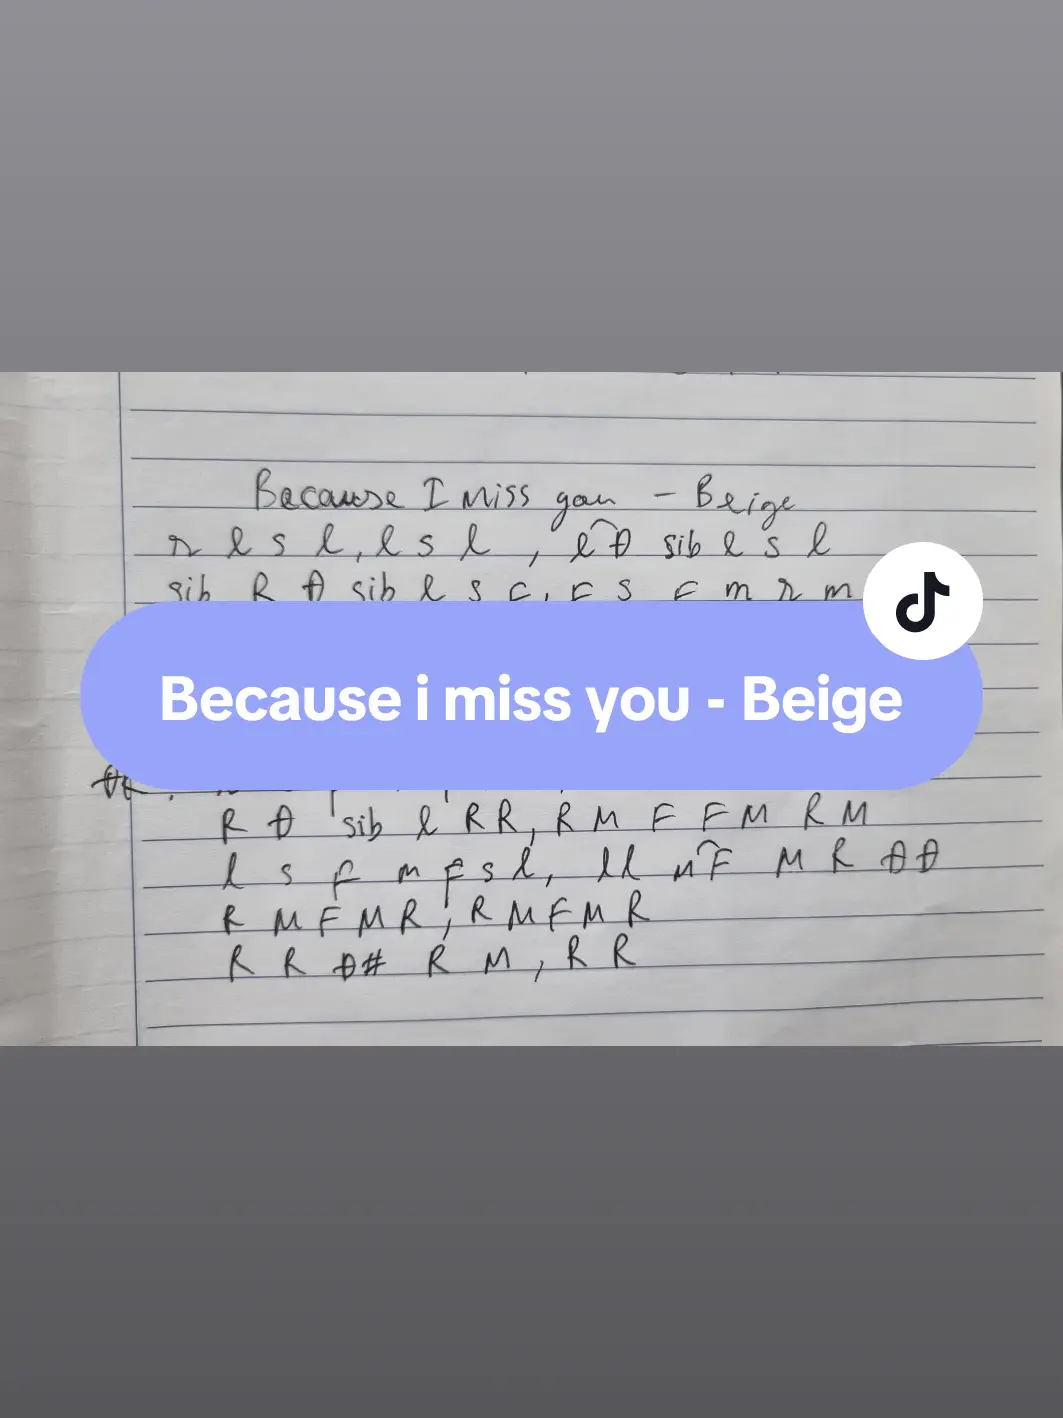 Because I Miss you - Beige
r l s l, l s l , l Đ sib l s l
sib R Đ sib l s f, f s f m r m
Because i miss you - Beige
ĐK :
R Đ sib l R R, R M F F M R M
l s f m f s l, l l M F M R Đ Đ
R M F M R, R M F M R
R R Đ# R M, R R